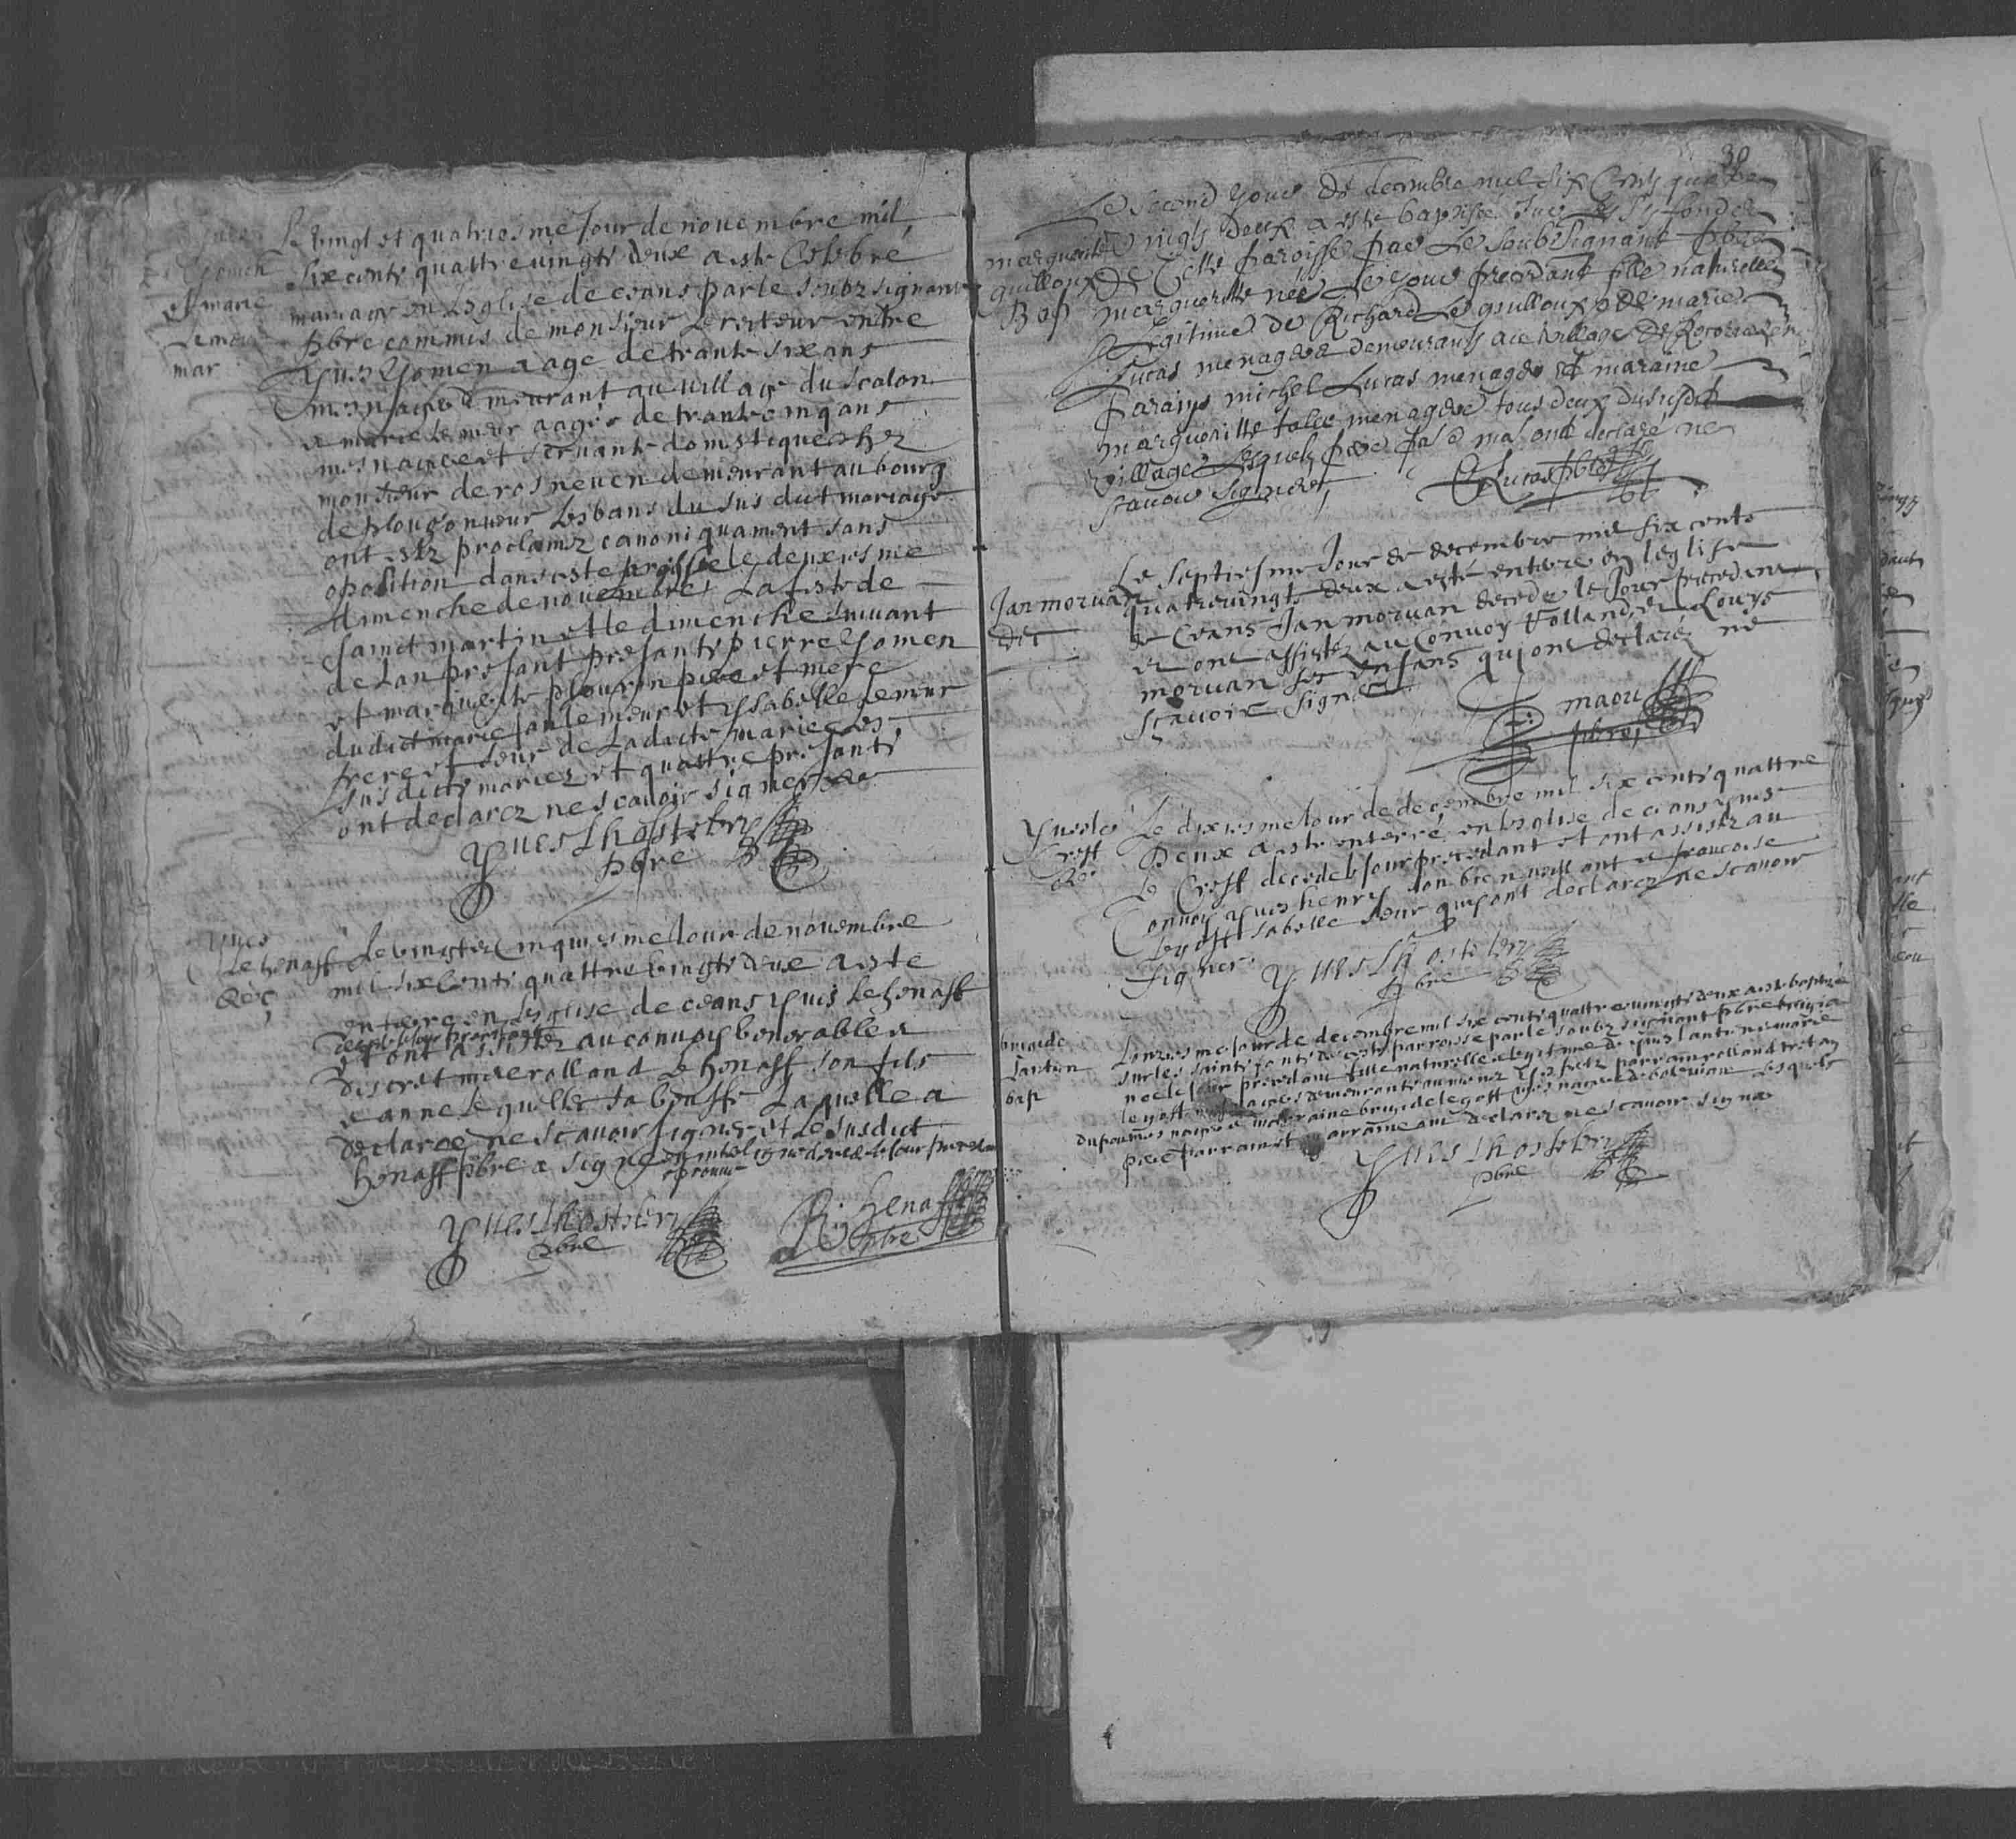 Yues
Yomen
et marie
Le meur
mar
Le vingt et quatriesme Jour de nouembre mil
six cents quattre vingts deux a este Celebre
mariage en Leglise de ceans par le soubz signant
pbre commis de monsieur Le recteur entre
Yues Yomen aage de trante six ans
mesnager demeurant au uillage du scalon
et marie le meur aagée de trante cinq ans
mesnagere et seruante domestique chez
monsieur de rosneuen demeurant au bourg
de plougonueur Les bans du sus dict mariage
ont este proclamez canoniquament sans
oposition dans ceste parrosse le deuxiesme
dimenche de nouembre La feste de
sainct martin et le dimenche suiuant
de Lan presant presants pierre Yomen
et marguerite plourin pere et mere
du dict marie Jan le meur et ysabelle le meur
frere et seur de La dicte mariee Les
sus dicts mariez et quattre presants
ont declarez ne scauoir signer
Yues Lhostelery
pbre
Yues
Le henaff
dec
Le vingt et Cinquiesme Iour de nouembre
mil six Cents quattre vingts deux a este
enterre en Leglise de ceans yues Le henaff
decede le Jour precedant
et ont assistez au conuoy venerable et
discret mre rolland Le henaff son fils
et anne Le quellec sa veufve Laquelle a
declaree ne scauoir signer et Le susdict
henaff pbre a signé
Yues Lhostelery
pbre
R: henaff
pbre
30
marguerite
guilloux
Bap
Le second Jour de decembre mil six Cents quatre
vingts deux a este baptisé sur les Sts fonds
de Cette paroisse par Le soubsignant pbre
marguerite née Le Jour precedant fille naturelle
et Legitime de Richard Le guilloux et de marie
Lucas menagers demeurants au village de
Parain michel Lucas menager et maraine
marguerite menagere tous deux du susdit
village Lesquels pere par et mar ont declaré ne
scauoir signer
Lucas pbre
Jan moruan
dec
Le septiesme Jour de decembre mil six cents
quatreuingts deux a esté enterre en leglise
de Ceans Jan moruan decede le Jour precedant
et ont assistez au Conuoy Rolland et Louys
moruan ses enfans qui ont declaré ne
scauoir signer
maou
pbre
Yues le
Croff
dec
Le dixiesme Iour de decembre mil six cents quattre
vingts deux a este enterré en Leglise de ceans yues
Le Croff decede le Jour precedant et ont assistez au
Conuoy yues henry son bien ueillant et francoise
Le goff sa belle seur qui ont declarez ne scauoir
signer
Yues Lhostelery
pbre
brigide
Lantern
bap
Lonziesme Jour de decembre mil six cents quattre vingts deux a este baptizée
sur les saints fonts de ceste parroisse par le soubz signant pbre brigide
née le Jour precedant fille naturelle et legitime de yues Lantern et marie
le goff mesnagers demeurants au parrain rolland
mesnager et marraine brigide le goff mesnagere Lesquels
pere parrain et marraine ont declarez ne scauoir signer
Yues Lhostelery
pbre